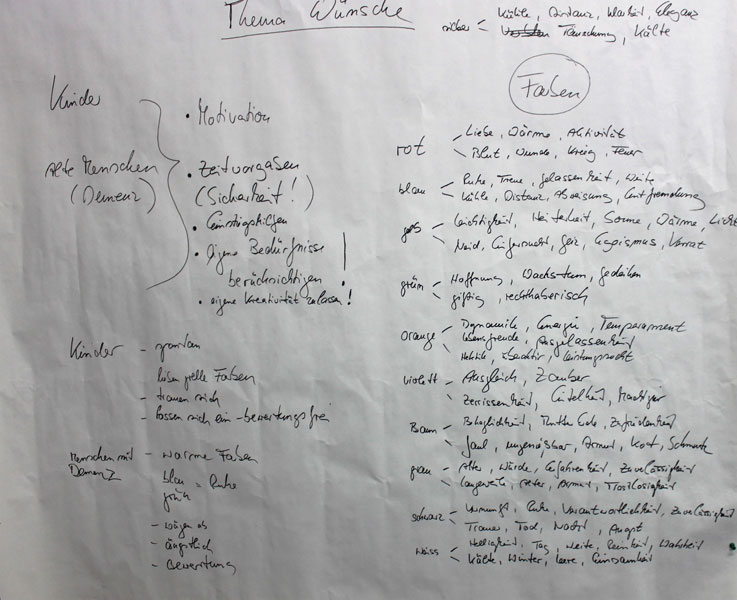 Thema Wünsche
Kinder
alte Menschen
(Demenz)
• Motivation
• Zeitvorgaben
(Sicherheit!)
• Einstiegshilfen
• eigene Bedürfnisse
berücksichtigen !
• eigene Kreativität zulassen!
Kinder - spontan
lieben grelle Farben
- trauen sich
- lassen sich ein - bewertungsfrei
Menschen mit - warme Farben
Demenz
blau = Ruhe
grün
- wägen ab
- ängstlich
- Bewertung
Kühle, Distanz, Klarheit, Eleganz
silber
Täuschung, Kälte
Farben
rot
Liebe, Wärme, Aktivität
Blut, Wunde, Krieg, Feuer
blau
Ruhe, Treue, Gelassenheit, Weite
Kühle, Distanz, Abweisung, Entfremdung
gelb
Leichtigkeit, Heiterkeit, Sonne, Wärme, Licht
Neid, Eifersucht, Geiz, Egoismus, Verrat
grün
Hoffnung, Wachstum, gedeihen
giftig, rechthaberisch
orange
Dynamik, Energie, Temperament
Lebensfreude, Ausgelassenheit
Hektik, Leistungssucht
violett
Ausgleich, Zauber
Zerrissenheit, Eitelkeit, Machtgier
Braun
Behaglichkeit, Mutter Erde, Zufriedenheit
faul, ungenießbar, Armut, Kot, Schmutz
grau
Alter, Würde, Erfahrenheit, Zuverlässigkeit
Langeweile, Alter, Armut, Trostlosigkeit
schwarz
Vernunft, Ruhe, Verantwortlichkeit, Zuverlässigkeit
Trauer, Tod, Nacht, Angst
weiss
Helligkeit, Tag, Weite, Reinheit, Wahrheit
Kälte, Winter, Leere, Einsamkeit